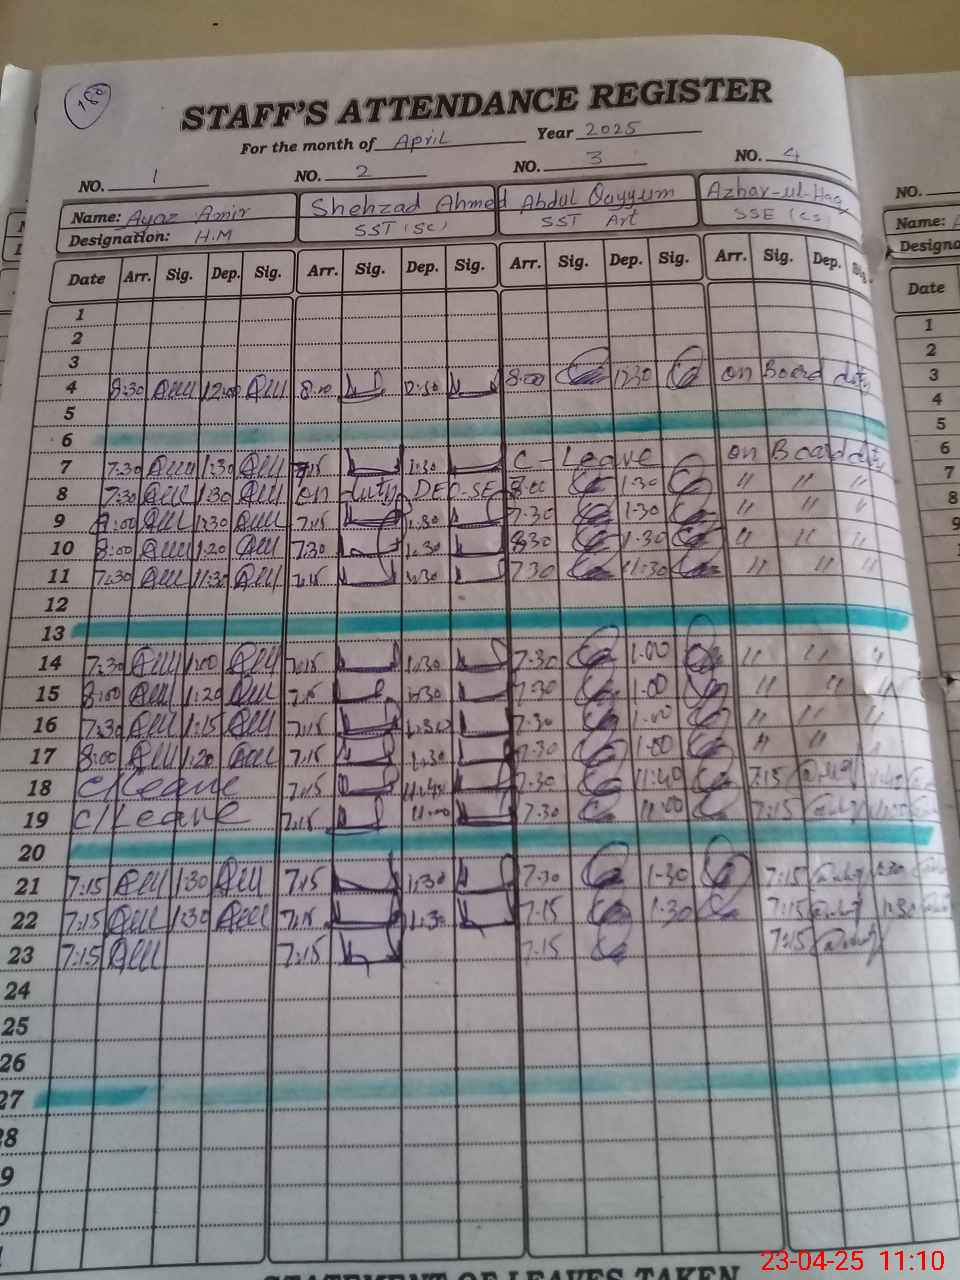 180
STAFF'S ATTENDANCE REGISTER
For the month of April Year 2025
NO. 1 NO. 2 NO. 3 NO. 4 NO.
Name: Ayaz Amir Shehzad Ahmed Abdul Qayyum Azhar-ul-Haq Name:
Designation: H.M SST (SC) SST Art SSE (CS) Designa
Date Arr. Sig. Dep. Sig. Arr. Sig. Dep. Sig. Arr. Sig. Dep. Sig. Arr. Sig. Dep. Sig. Date
1 1
2 2
3 3
4 8:30 12:00 8:00 12:30 8:00 1230 on Board duty 4
5 5
6 6
7 7:30 1:30 7:15 1:30 C-Leave on Board duty 7
8 7:30 1:30 on duty DEO-SE 8:00 1:30 " " " 8
9 1:30 7:15 1:30 7:30 1:30 " " " 9
10 8:00 1:20 7:30 1:30 830 1:30 " " "
11 7:30 11:30 7:15 7:30 11:30 " " "
12
13
14 7:30 1:00 7:15 1:30 7:30 1:00 " " "
15 8:00 1:20 7:15 1:30 7:30 1:00 " " "
16 7:30 1:15 7:15 1:30 7:30 1:00 " " "
17 8:00 1:20 7:15 1:30 7:30 1:00 " "
18 C/Leave 7:15 11:45 7:30 11:40 7:15
19 C/Leave 7:15 11:00 7:30 11:00 7:15
20
21 7:15 1:30 7:15 1:30 7:30 1:30 7:15 1:30
22 7:15 1:30 7:15 1:30 7:15 1:30 7:15 1:30
23 7:15 7:15 7:15 7:15
24
25
26
27
8
9
0
STATEMENT OF LEAVES TAKEN
23-04-25 11:10